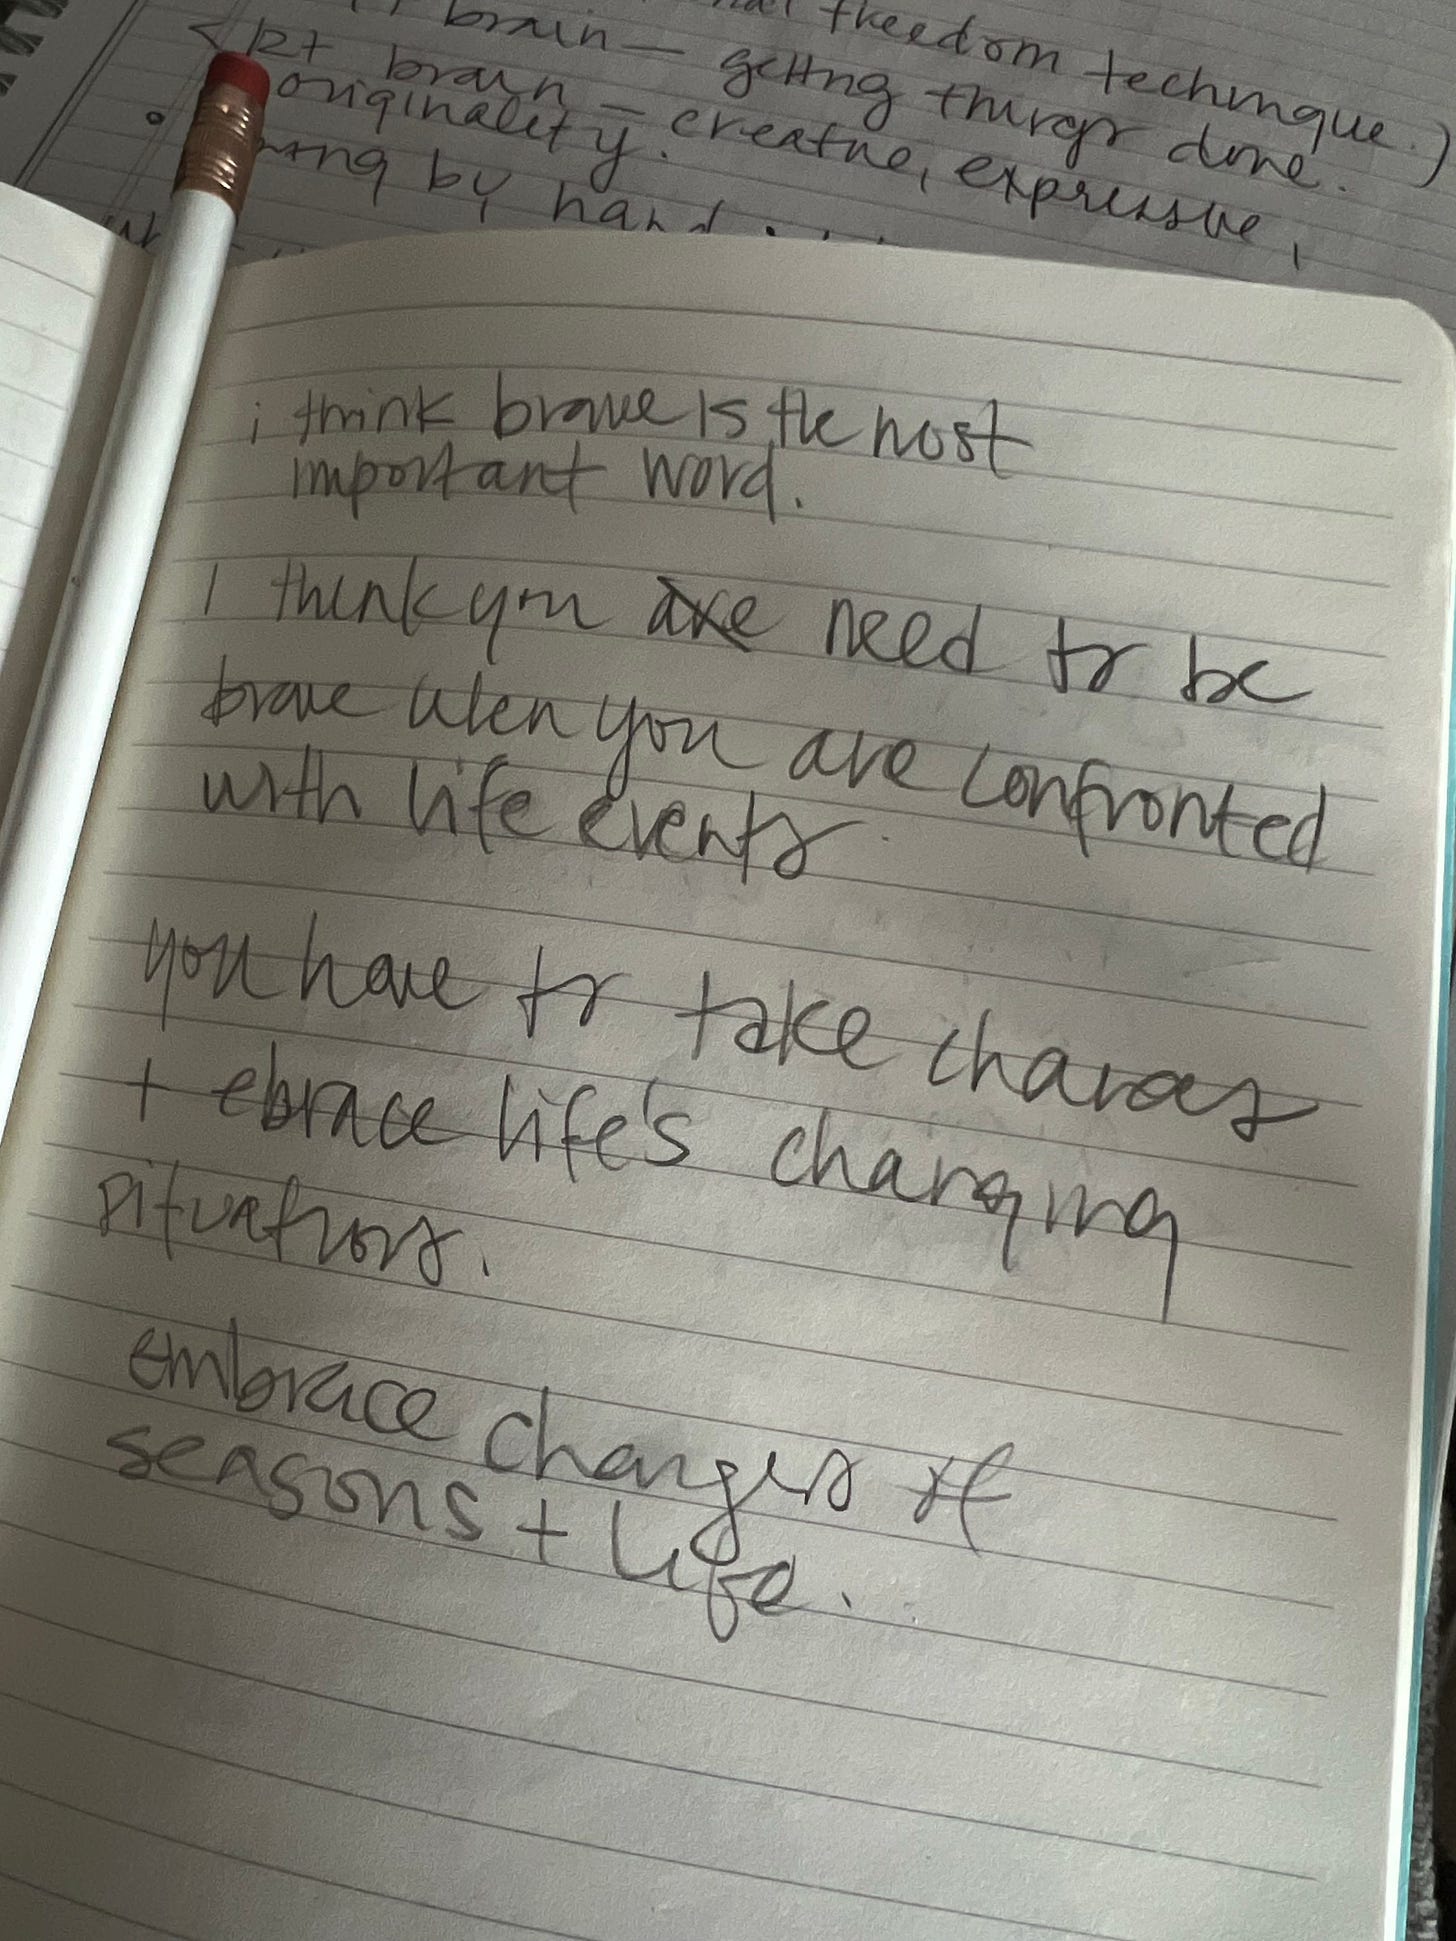 freedom technique.)
brain — getting things done.
Rt brain — creative, expressive,
originality.
by hand
i think brave is the most
important word.
I think you need to be
brave when you are confronted
with life events
you have to take
+ ebrace life's changing
situations.
embrace changes of
seasons + life.